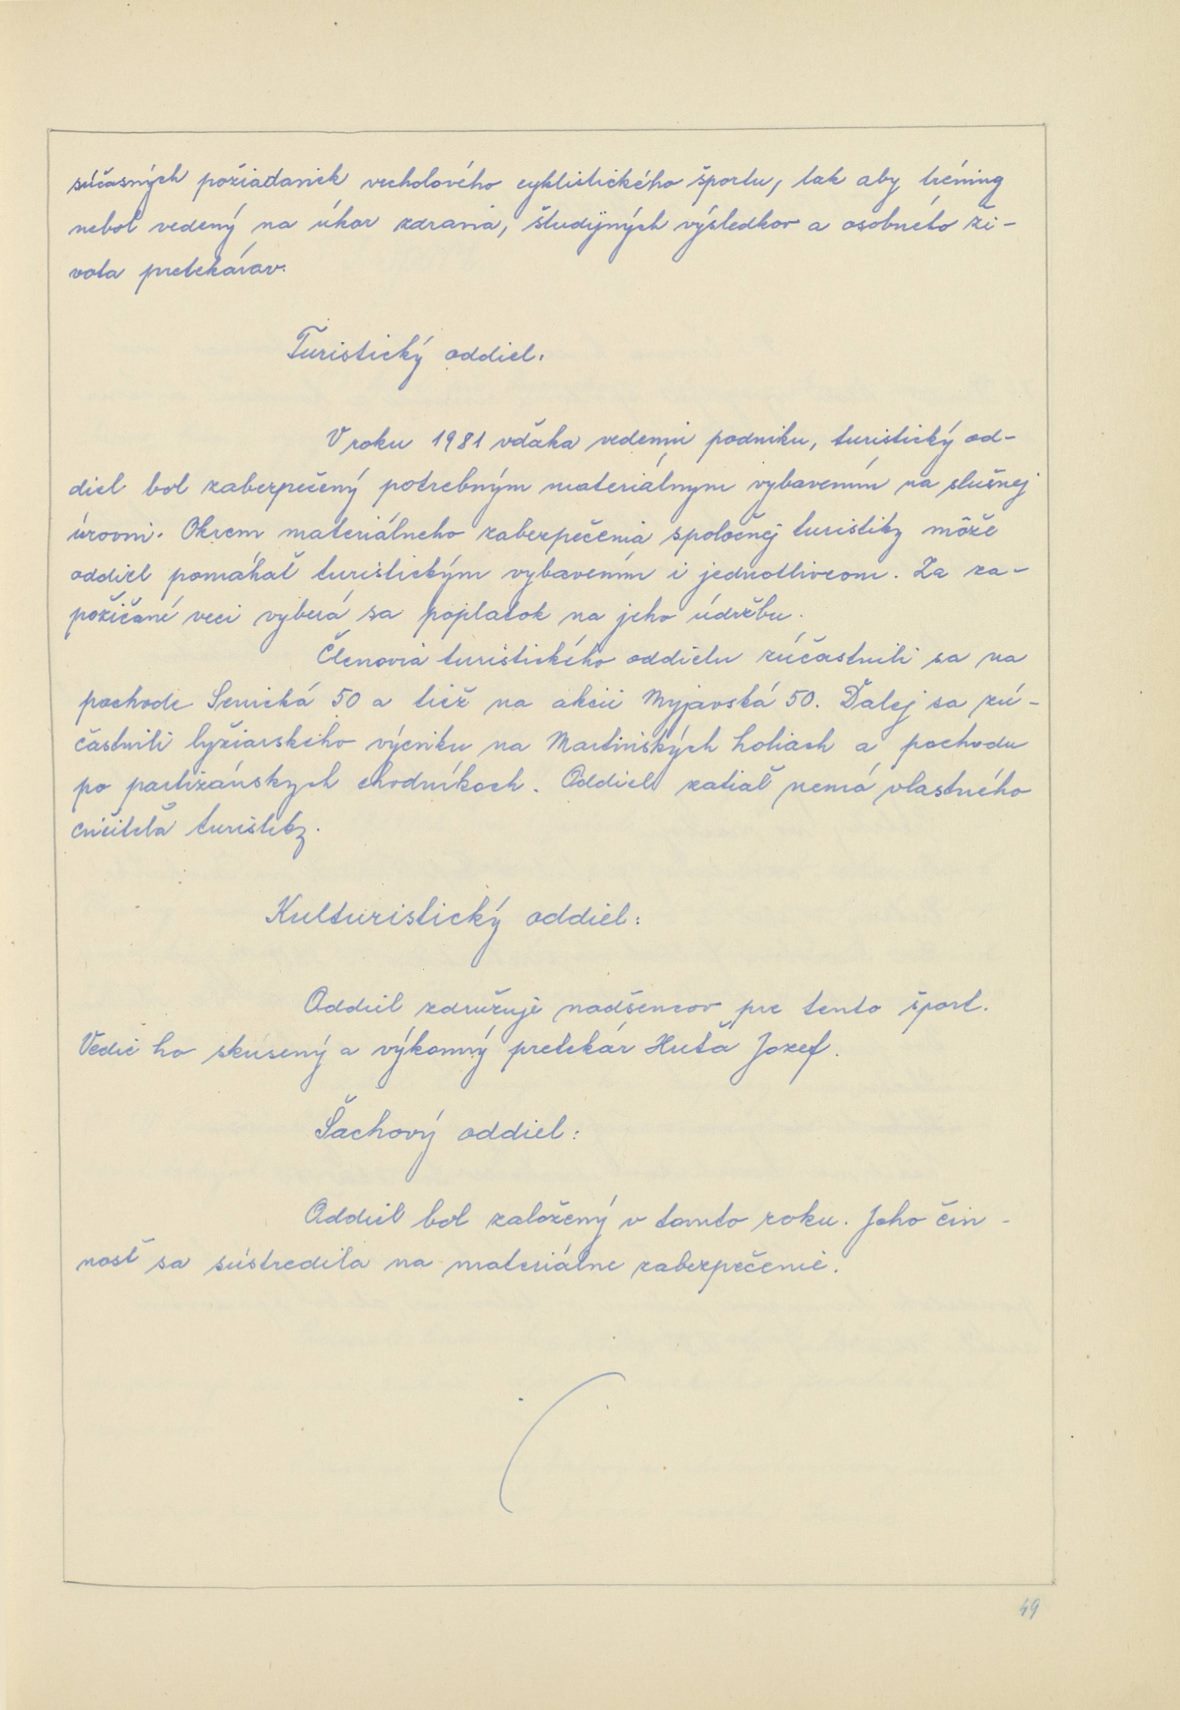 súčasných požiadaviek vrcholového cyklistického športu, tak aby tréning
nebol vedený na úkor zdravia, študijných výsledkov a osobného ži-
vota pretekárov.
Turistický oddiel.
V roku 1981 vďaka vedeniu podniku, turistický od-
diel bol zabezpečený potrebným materiálnym vybavením na slušnej
úrovni. Okrem materiálneho zabezpečenia spoločnej turistiky môže
oddiel pomáhať turistickým vybavením i jednotlivcom. Za za-
požičané veci vyberá sa poplatok na jeho údržbu.
Členovia turistického oddielu zúčastnili sa na
pochode Senická 50 a tiež na akcii Myjavská 50. Ďalej sa zú-
častnili lyžiarskeho výcviku na Martinských holiach a pochodu
po partizánskych chodníkoch. Oddiel zatiaľ nemá vlastného
cvičiteľa turistiky.
Kulturistický oddiel:
Oddiel združuje nadšencov pre tento šport.
Vedie ho skúsený a výkonný pretekár Huťa Jozef.
Šachový oddiel:
Oddiel bol založený v tomto roku. Jeho čin-
nosť sa sústredila na materiálne zabezpečenie.
49